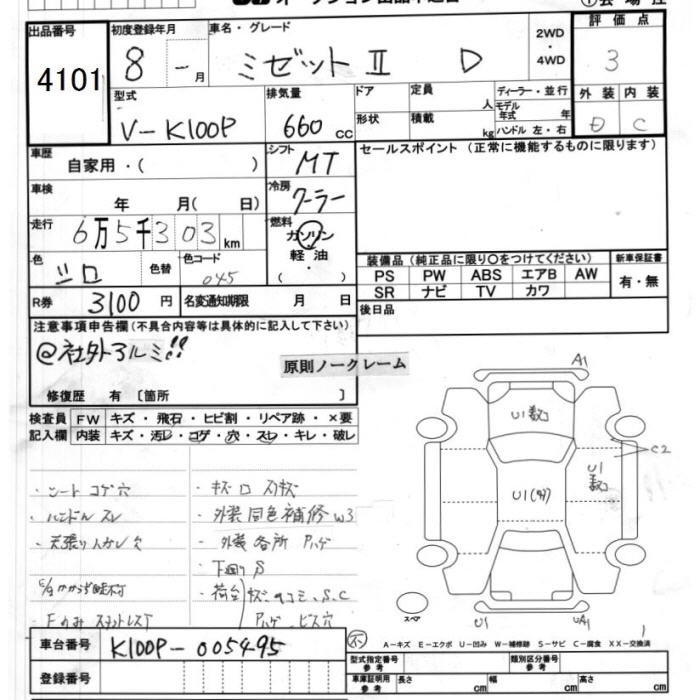 出品番号
4101
初度登録年月
8 - 月
車名・グレード
ミゼットⅡ D
2WD
・
4WD
評価点
3
外装 内装
D C
型式
V-K100P
排気量
660 cc
ドア
形状
定員
人
積載
kg
ディーラー・並行
モデル年式 年
ハンドル 左・右
車歴
自家用・( )
シフト
MT
セールスポイント (正常に機能するものに限ります)
車検
年 月( 日)
冷房
クーラー
走行
6万5千303 km
燃料
ガソリン
軽油
( )
色
シロ
色替
色コード
045
装備品 (純正品に限り〇をつけてください)
PS PW ABS エアB AW
SR ナビ TV カワ
新車保証書
有・無
R券
3100円
名変通知期限 月 日
後日品
注意事項申告欄(不具合内容等は具体的に記入して下さい)
@社外アルミ!!
原則ノークレーム
修復歴 有 〔箇所 〕
検査員
記入欄
FW キズ・飛石・ヒビ割・リペア跡・×要
内装 キズ・汚レ・コゲ・穴・スレ・キレ・破レ
・シート コゲ穴
・ハンドル スレ
・キズ ロ スリキズ
・外装同色補修W3
・外装各所 ハゲ
・下廻りS
A1
U1数コ
C2
U1
数コ
U1(タタ)
スペア
U1
UA1
車台番号
K100P-005495
登録番号
A-キズ E-エクボ U-凹み W-補修跡 S-サビ C-腐食 XX-交換済
型式指定番号
参考
類別区分番号
参考
車庫証明用
参考
長さ cm
幅 cm
高さ cm